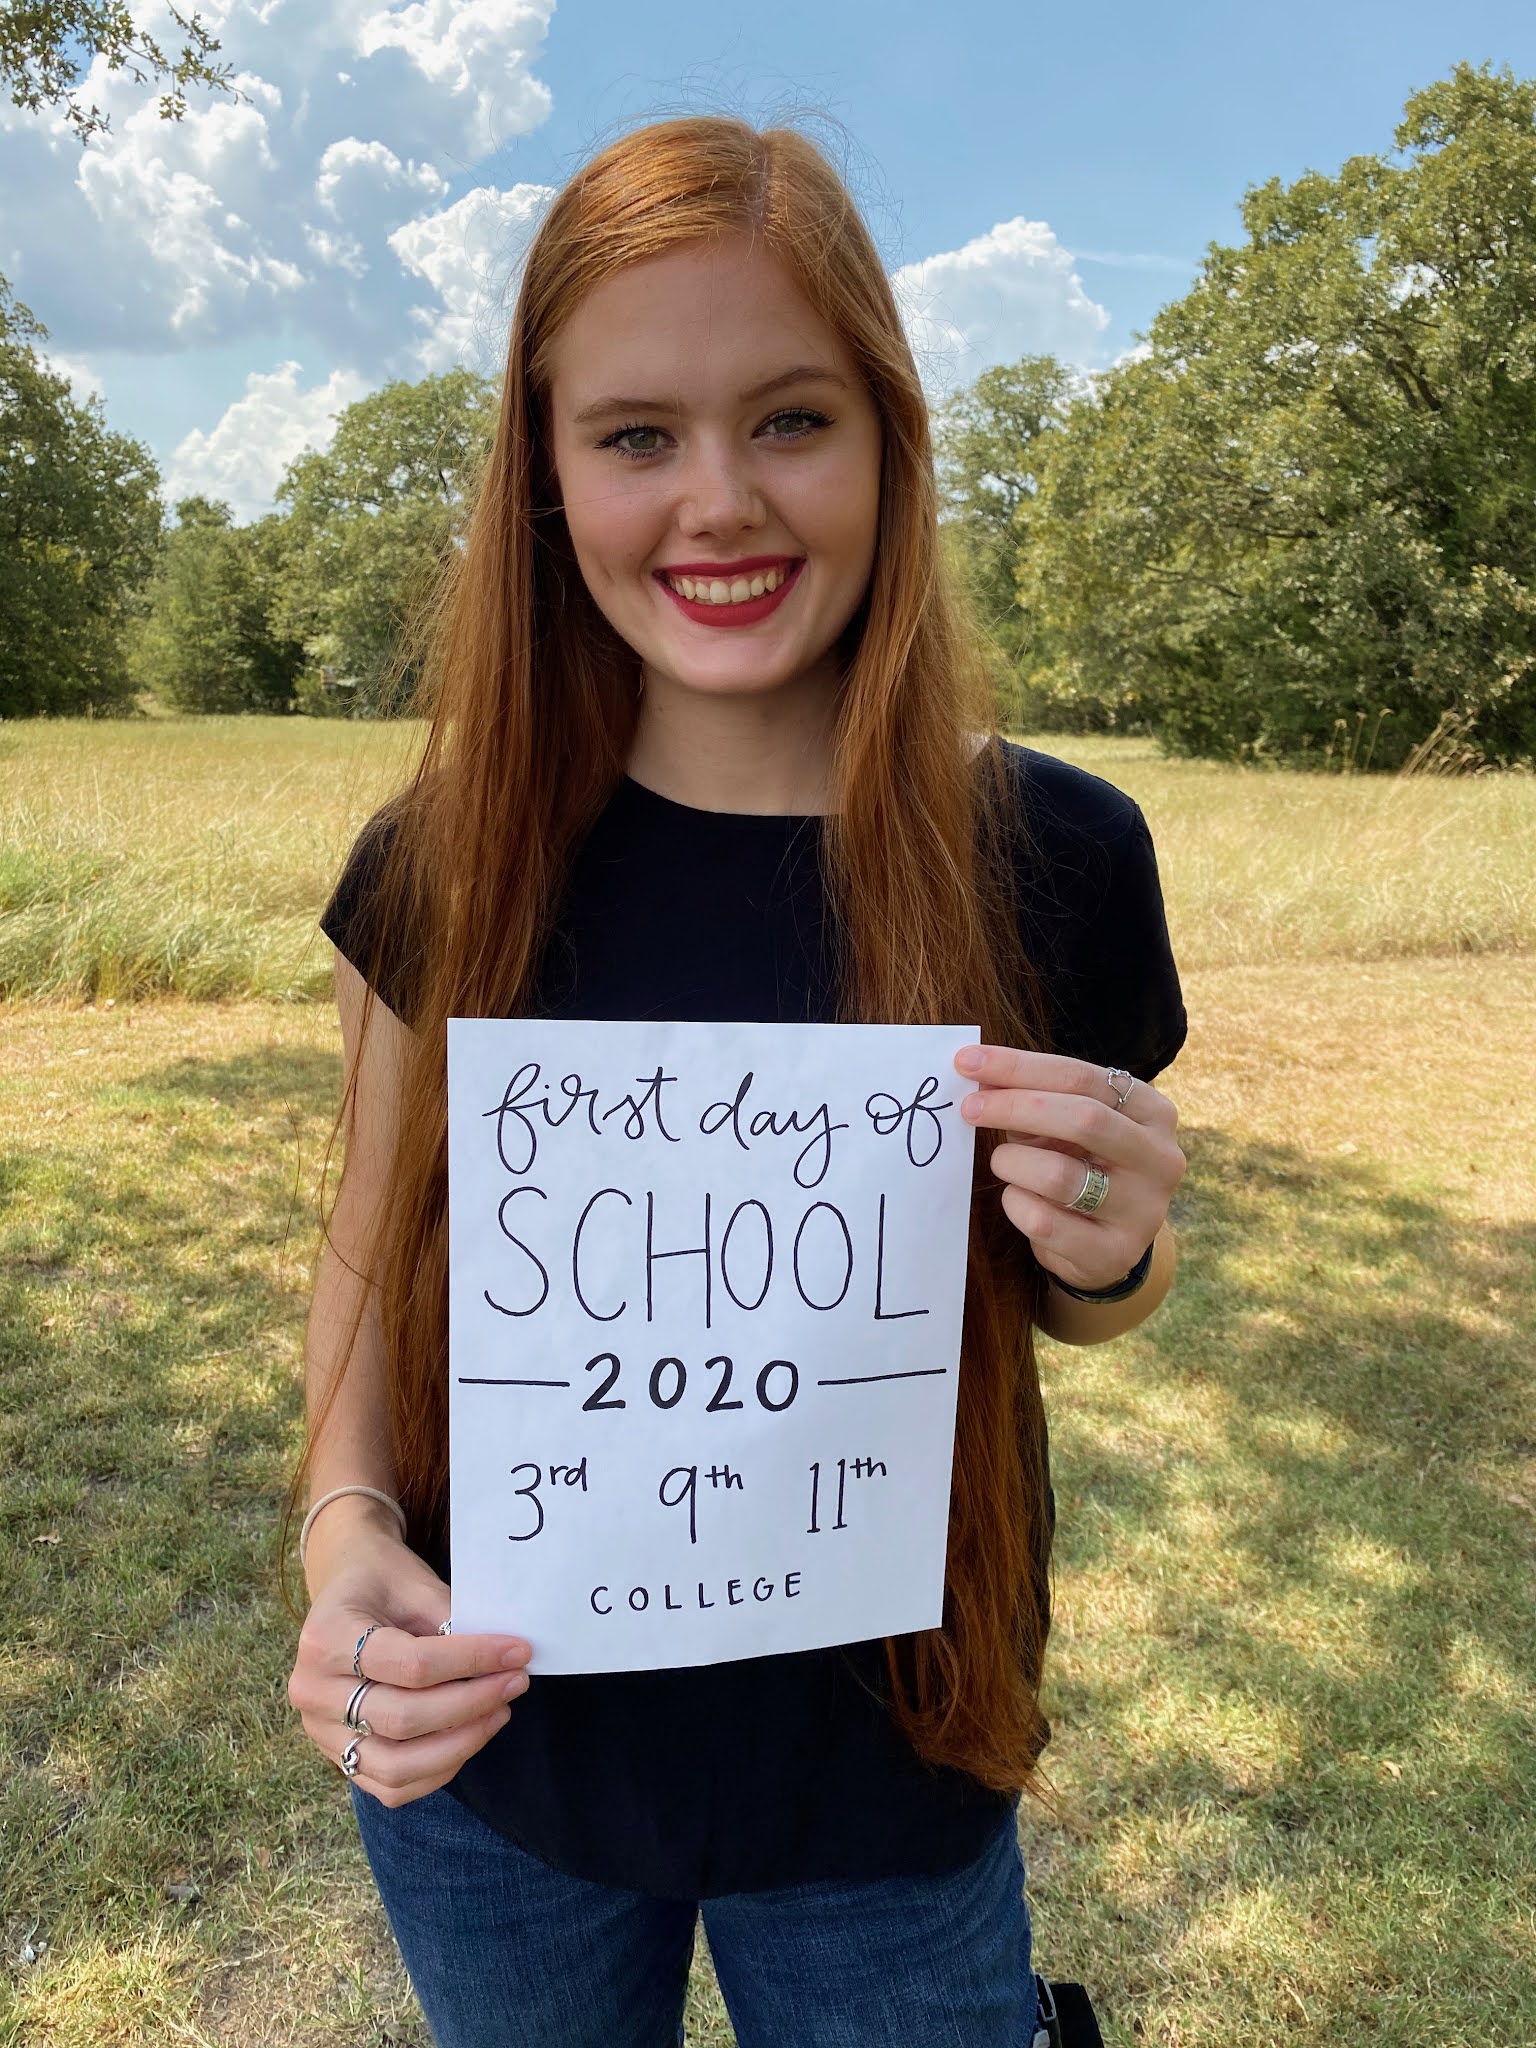 first day of
SCHOOL
2020
3rd 9th 11th
COLLEGE